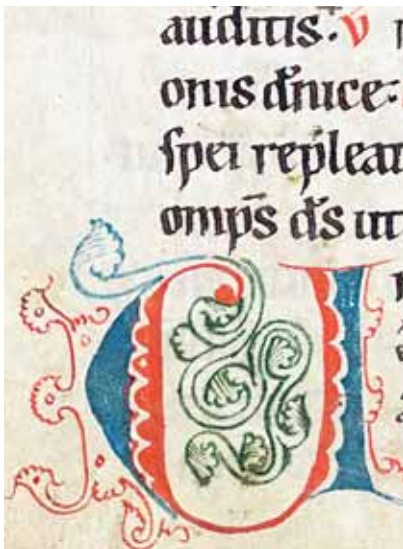 auditis. V
onis dñice:
spei repleat
omps ds ut
U